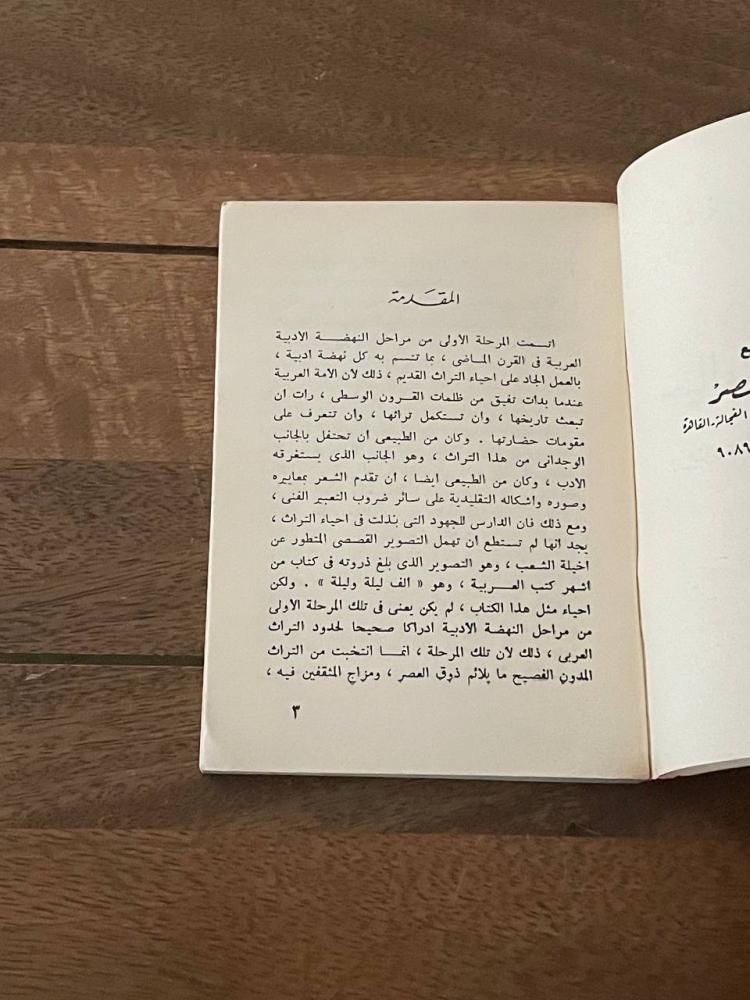 ع
مصر
الفجالة - القاهرة
٩٠٨٩
المقدمة
اتسمت المرحلة الاولى من مراحل النهضة الادبية
العربية فى القرن الماضى ، بما تتسم به كل نهضة ادبية ،
بالعمل الجاد على احياء التراث القديم ، ذلك لان الامة العربية
عندما بدات تفيق من ظلمات القرون الوسطى ، رات ان
تبعث تاريخها ، وان تستكمل تراثها ، وان تتعرف على
مقومات حضارتها . وكان من الطبيعى ان تحتفل بالجانب
الوجدانى من هذا التراث ، وهو الجانب الذى يستغرقه
الادب ، وكان من الطبيعى ايضا ، ان تقدم الشعر بمعاييره
وصوره واشكاله التقليدية على سائر ضروب التعبير الفنى ،
ومع ذلك فان الدارس للجهود التى بذلت فى احياء التراث ،
يجد انها لم تستطع ان تهمل التصوير القصصى المتطور عن
اخيلة الشعب ، وهو التصوير الذى بلغ ذروته فى كتاب من
اشهر كتب العربية ، وهو « الف ليلة وليلة » . ولكن
احياء مثل هذا الكتاب ، لم يكن يعنى فى تلك المرحلة الاولى
من مراحل النهضة الادبية ادراكا صحيحا لحدود التراث
العربى ، ذلك لان تلك المرحلة ، انما انتخبت من التراث
المدون الفصيح ما يلائم ذوق العصر ، ومزاج المثقفين فيه ،
٣